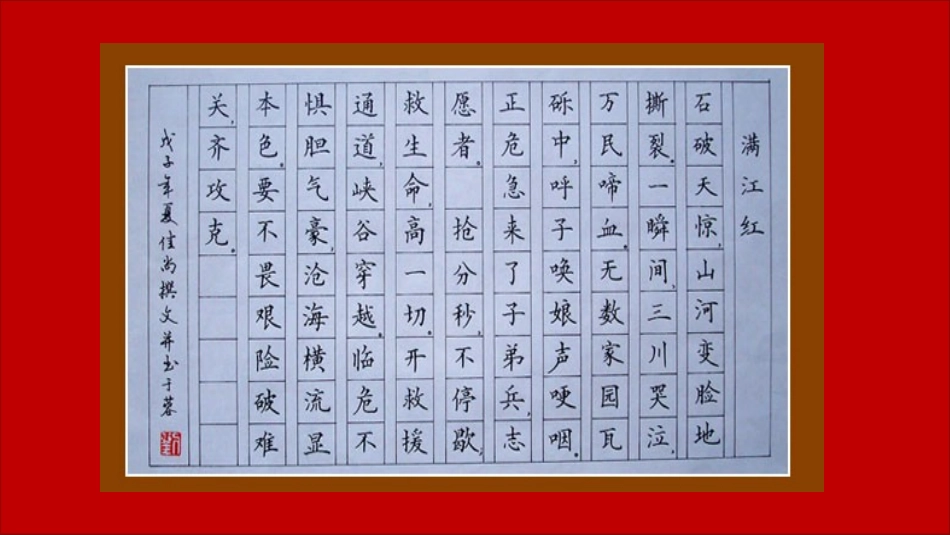 满江红
石破天惊,山河变脸地
撕裂。一瞬间,三川哭泣,
万民啼血。无数家园瓦
砾中,呼子唤娘声哽咽。
正危急来了子弟兵,志
愿者。 抢分秒,不停歇;
救生命,高一切。开救援
通道,峡谷穿越。临危不
惧胆气豪,沧海横流显
本色。要不畏艰险破难
关,齐攻克。
戊子年夏佳尚撰文并书于蓉